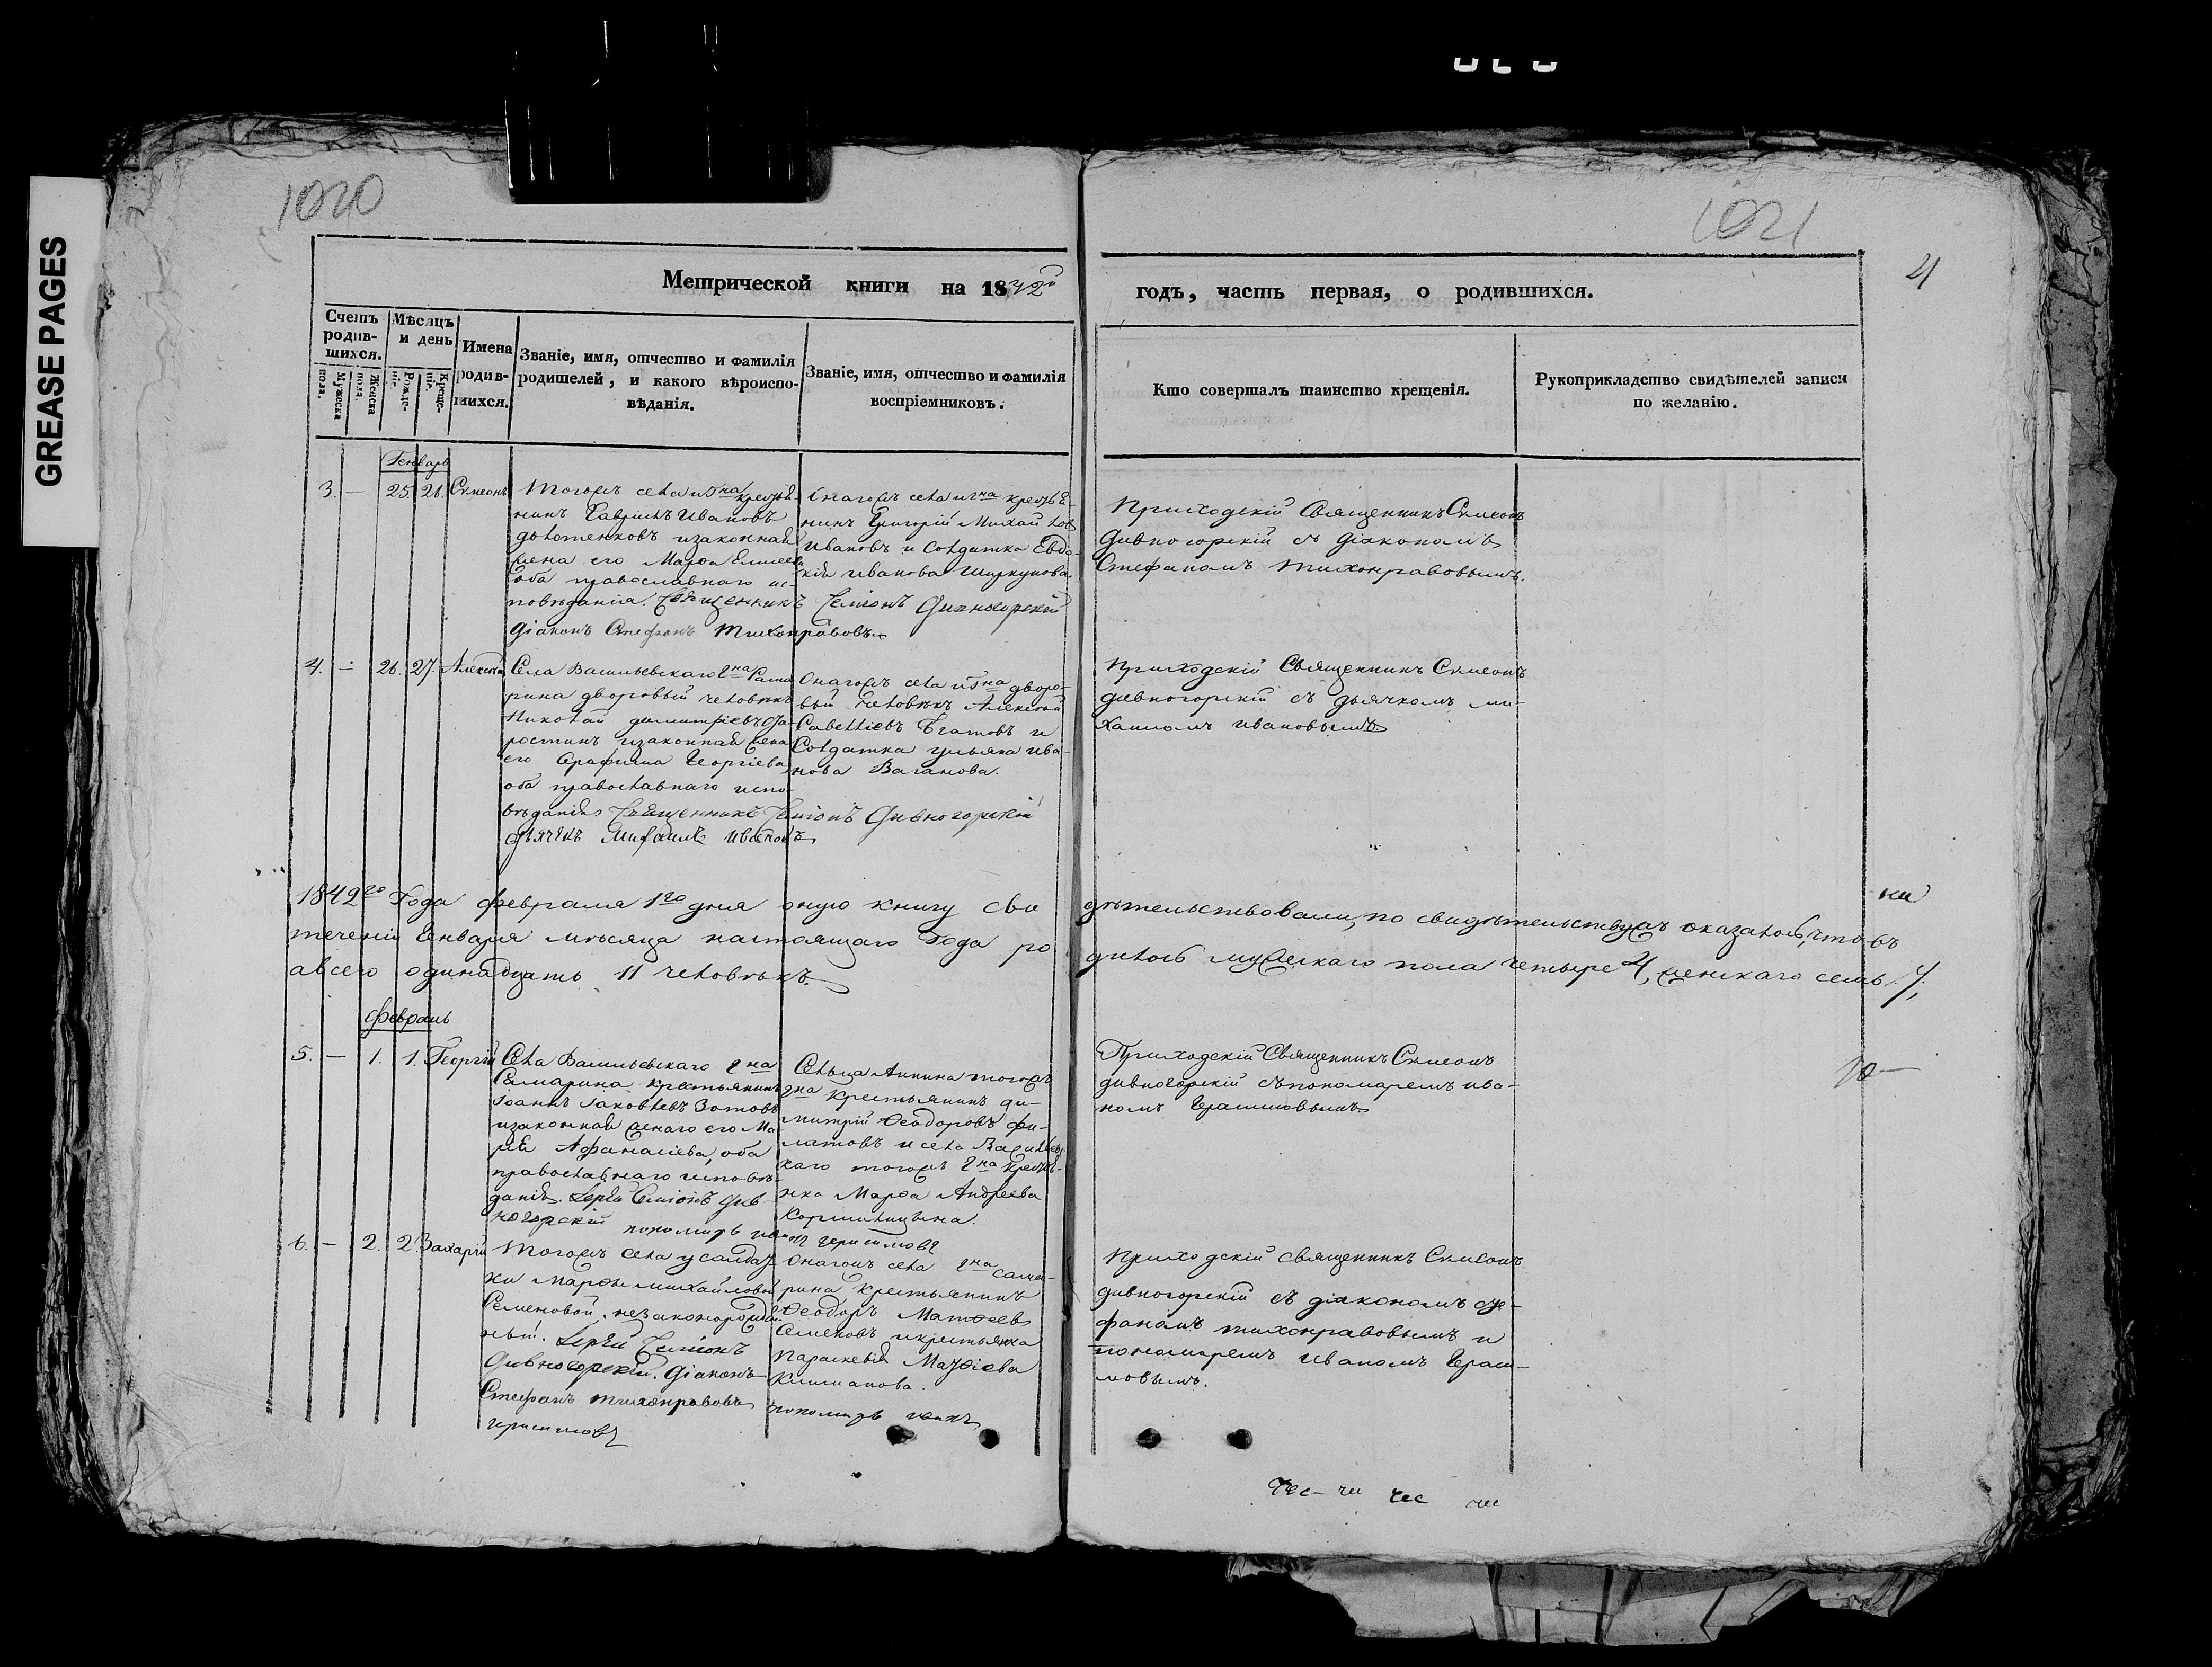 GREASE PAGES
1020
1021
4
Метрической книги на 1842й
годъ, часть первая, о родившихся.
Счетъ родившихся.
Мужеска пола.
Женска пола.
Мѣсяцъ и день
Рожденiе.
Крещенiе.
Имена родившихся.
Званiе, имя, отчество и фамилiя
родителей, и какого вѣроиспо-
вѣданiя.
Званiе, имя, отчество и фамилiя
воспрiемниковъ.
Кто совершалъ таинство крещенiя.
Рукоприкладство свидѣтелей записи
по желанiю.
Генварь
3. — 25. 26. Симеонъ
Тогожъ села
нинъ Гаврiилъ Ивановъ
изаконная
жена его Марфа Елисеева
оба православнаго ис-
повѣданiя. Священникъ Семiонъ Дивногорскiй
Дiаконъ Стефанъ Тихонравовъ
Онагожъ села
нинъ Григорiй Михайловъ
Ивановъ и Солдатка Евдо-
кiя Иванова
Приходскiй Священникъ Симеонъ
Дивногорскiй съ дiакономъ
Стефаномъ Тихонравовымъ.
4. — 26. 27. Алексѣй
Села Васильевскаго гна Сама
рина дворовый человѣкъ
Николай Димитрiевъ
изаконная жена
его Серафима Георгiева
оба православнаго испо-
вѣданiя Священникъ Семiонъ Дивногорскiй
дьячекъ Михаилъ Ивановъ
Онагожъ села дворо-
вый человѣкъ Алексѣй
Савельевъ и
Солдатка Ульяна Ива-
нова Ваганова.
Приходскiй Священникъ Симеонъ
дивногорскiй съ дьячкомъ ми-
хаиломъ Ивановымъ
1842го Года февраля 1го дня оную книгу сви дѣтельствовали, по свидѣтельству оказалось, что въ
теченiи Генваря мѣсяца настоящаго Года ро дилось мужескаго пола четыре 4, женскаго семь 7;
авсего одинадцать 11 человѣкъ.
Февраль
5. — 1. 1. Георгiй
Села Васильевскаго гна
Самарина крестьянинъ
Iоаннъ Iаковлевъ Зотовъ
изаконная жена его Ма-
рiя Афанасiева, оба
православнаго исповѣ-
данiя. Iерей Семiонъ Див-
ногорскiй пономарь Иванъ Герасимовъ
Сельца Аннина тогожъ
гна крестьянинъ Ди-
митрiй Феодоровъ Фи-
латовъ и села Васильевс-
каго тогожъ гна
Марфа Андреева
Приходскiй Священникъ Симеонъ
дивногорскiй съпономаремъ Ива-
номъ Герасимовымъ
6. — 2. 2. Захарiй
Тогожъ села усолдат-
ки Марфы Михайловой
Семеновой, незаконорожден-
ный. Iерей Семiонъ
Дивногорскiй. Дiаконъ
Стефанъ Тихонравовъ пономарь Иванъ
Герасимовъ
Онагожъ села гна Сама-
рина крестьянинъ
Феодоръ Матфеевъ
Семеновъ икрестьянка
Параскевiя
Климанова.
Приходскiй священникъ Симеонъ
дивногорскiй съ дiакономъ Сте-
фаномъ тихонравовымъ и
пономаремъ Иваномъ Гераси-
мовымъ.